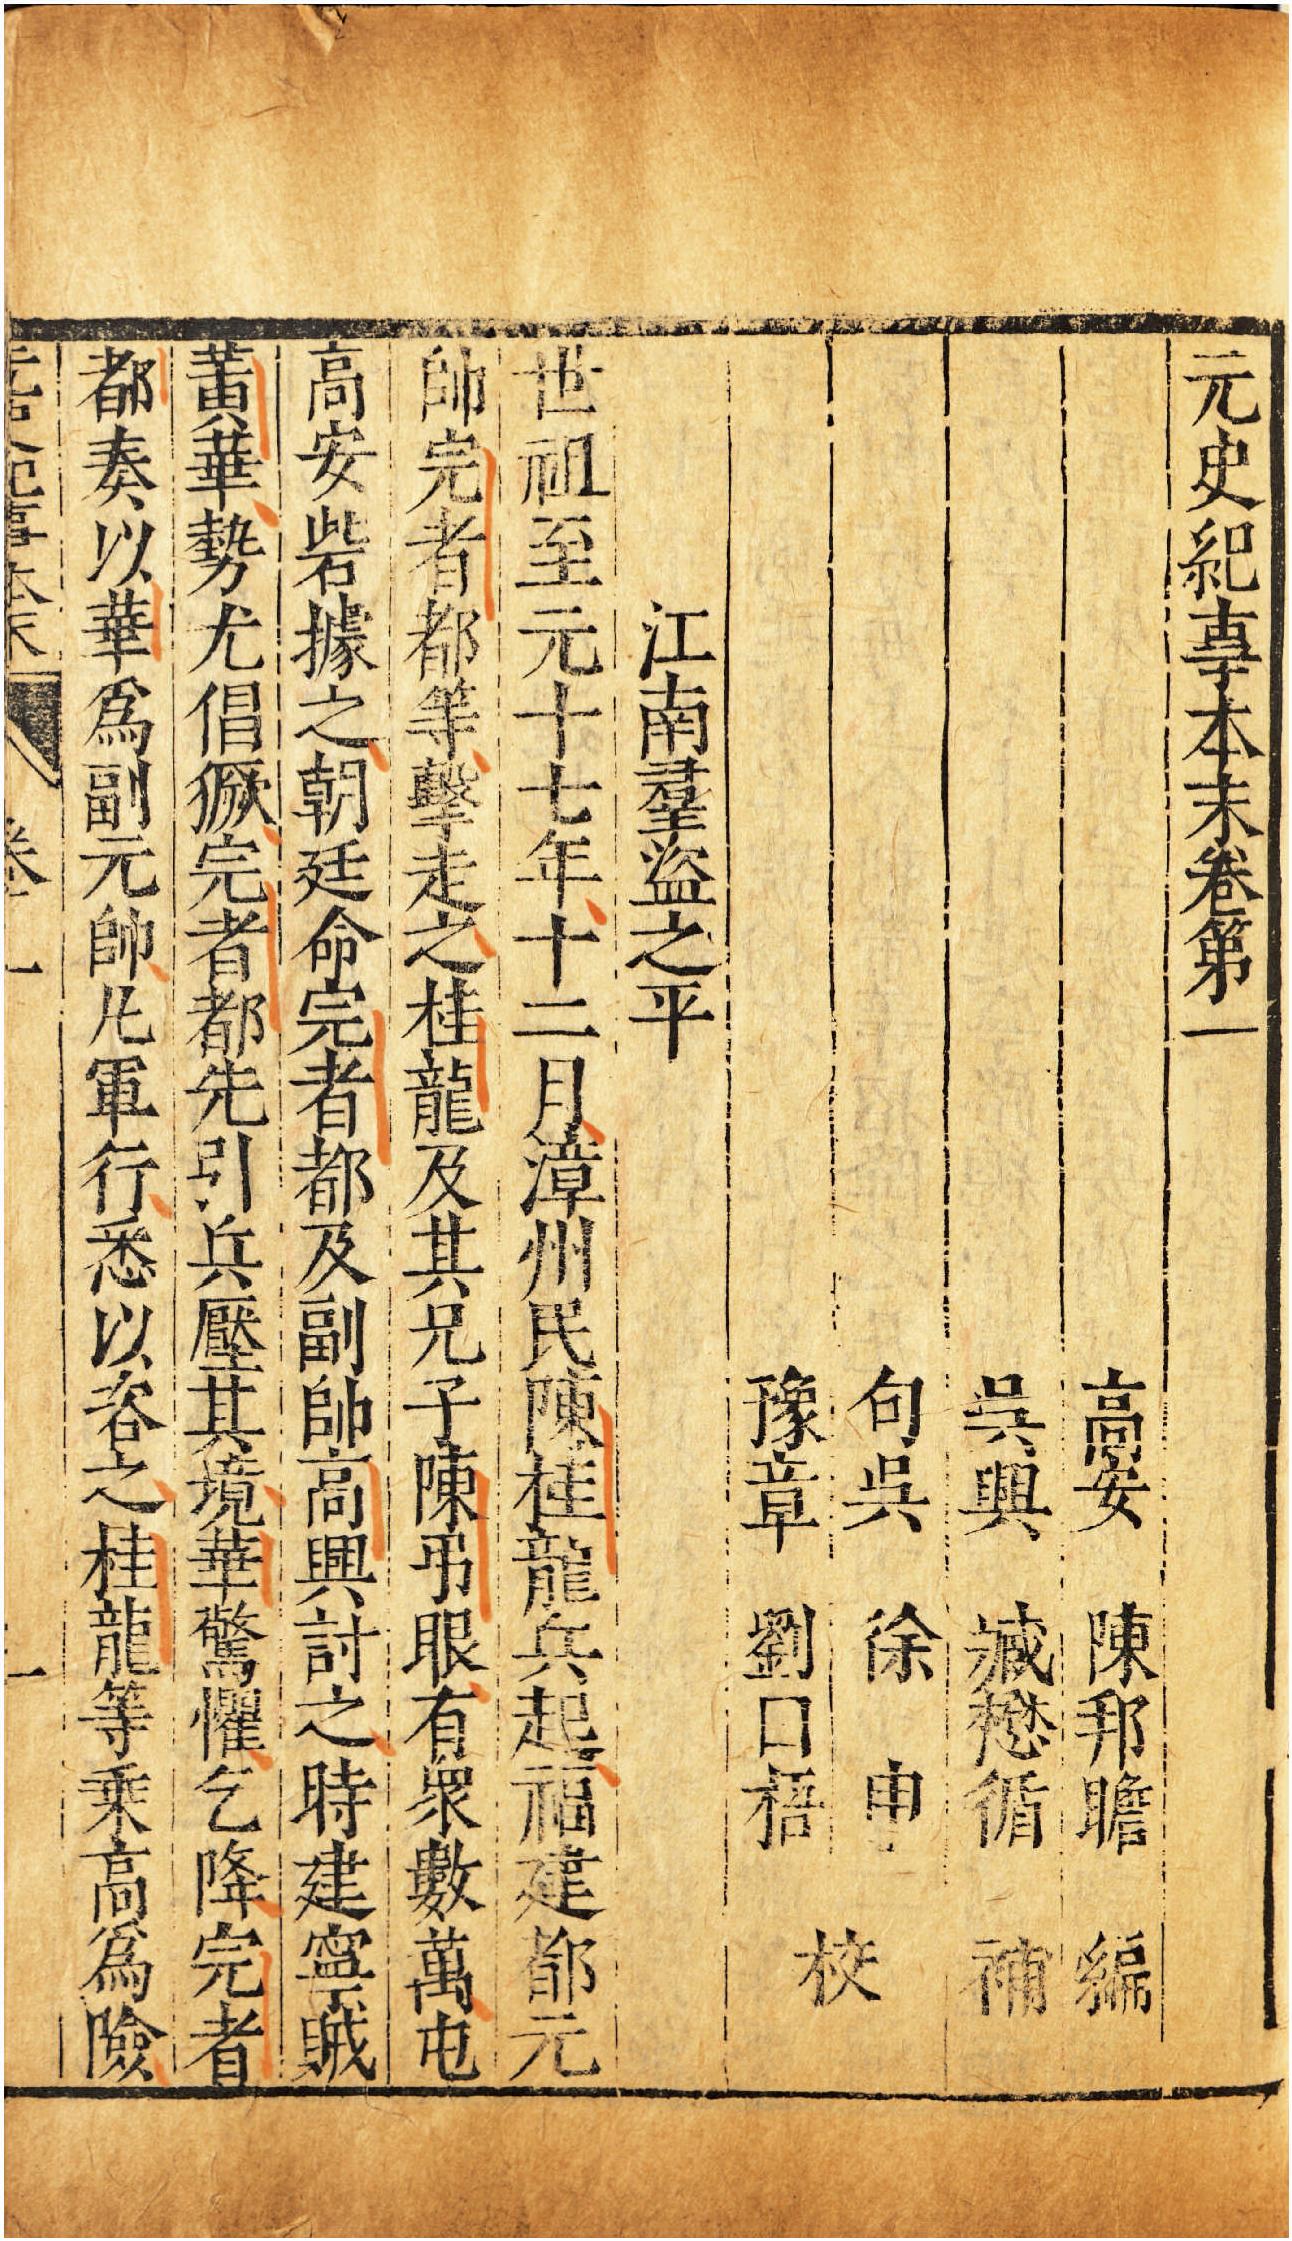 元史紀事本末卷第一
高安　陳邦瞻　編
吳興　臧懋循　補
句吳　徐　申
豫章　劉曰梧
校
江南羣盜之平
世祖至元十七年十二月漳州民陳桂龍兵起福建都元
帥完者都等擊走之桂龍及其兄子陳弔眼有衆數萬屯
高安砦據之朝廷命完者都及副帥高興討之時建寧賊
黃華勢尤倡獗完者都先引兵壓其境華驚懼乞降完者
都奏以華爲副元帥凡軍行悉以咨之桂龍等乘高爲險
元史紀事本末　卷一　一